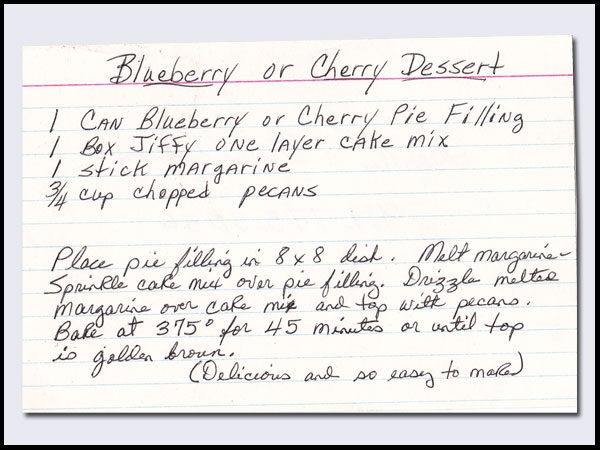 Blueberry or Cherry Dessert
1 Can Blueberry or Cherry Pie Filling
1 Box Jiffy one layer cake mix
1 stick margarine
3/4 cup chopped pecans
Place pie filling in 8 x 8 dish. Melt margarine-
Sprinkle cake mix over pie filling. Drizzle melted
margarine over cake mix and top with pecans.
Bake at 375° for 45 minutes or until top
is golden brown.
(Delicious and so easy to make)